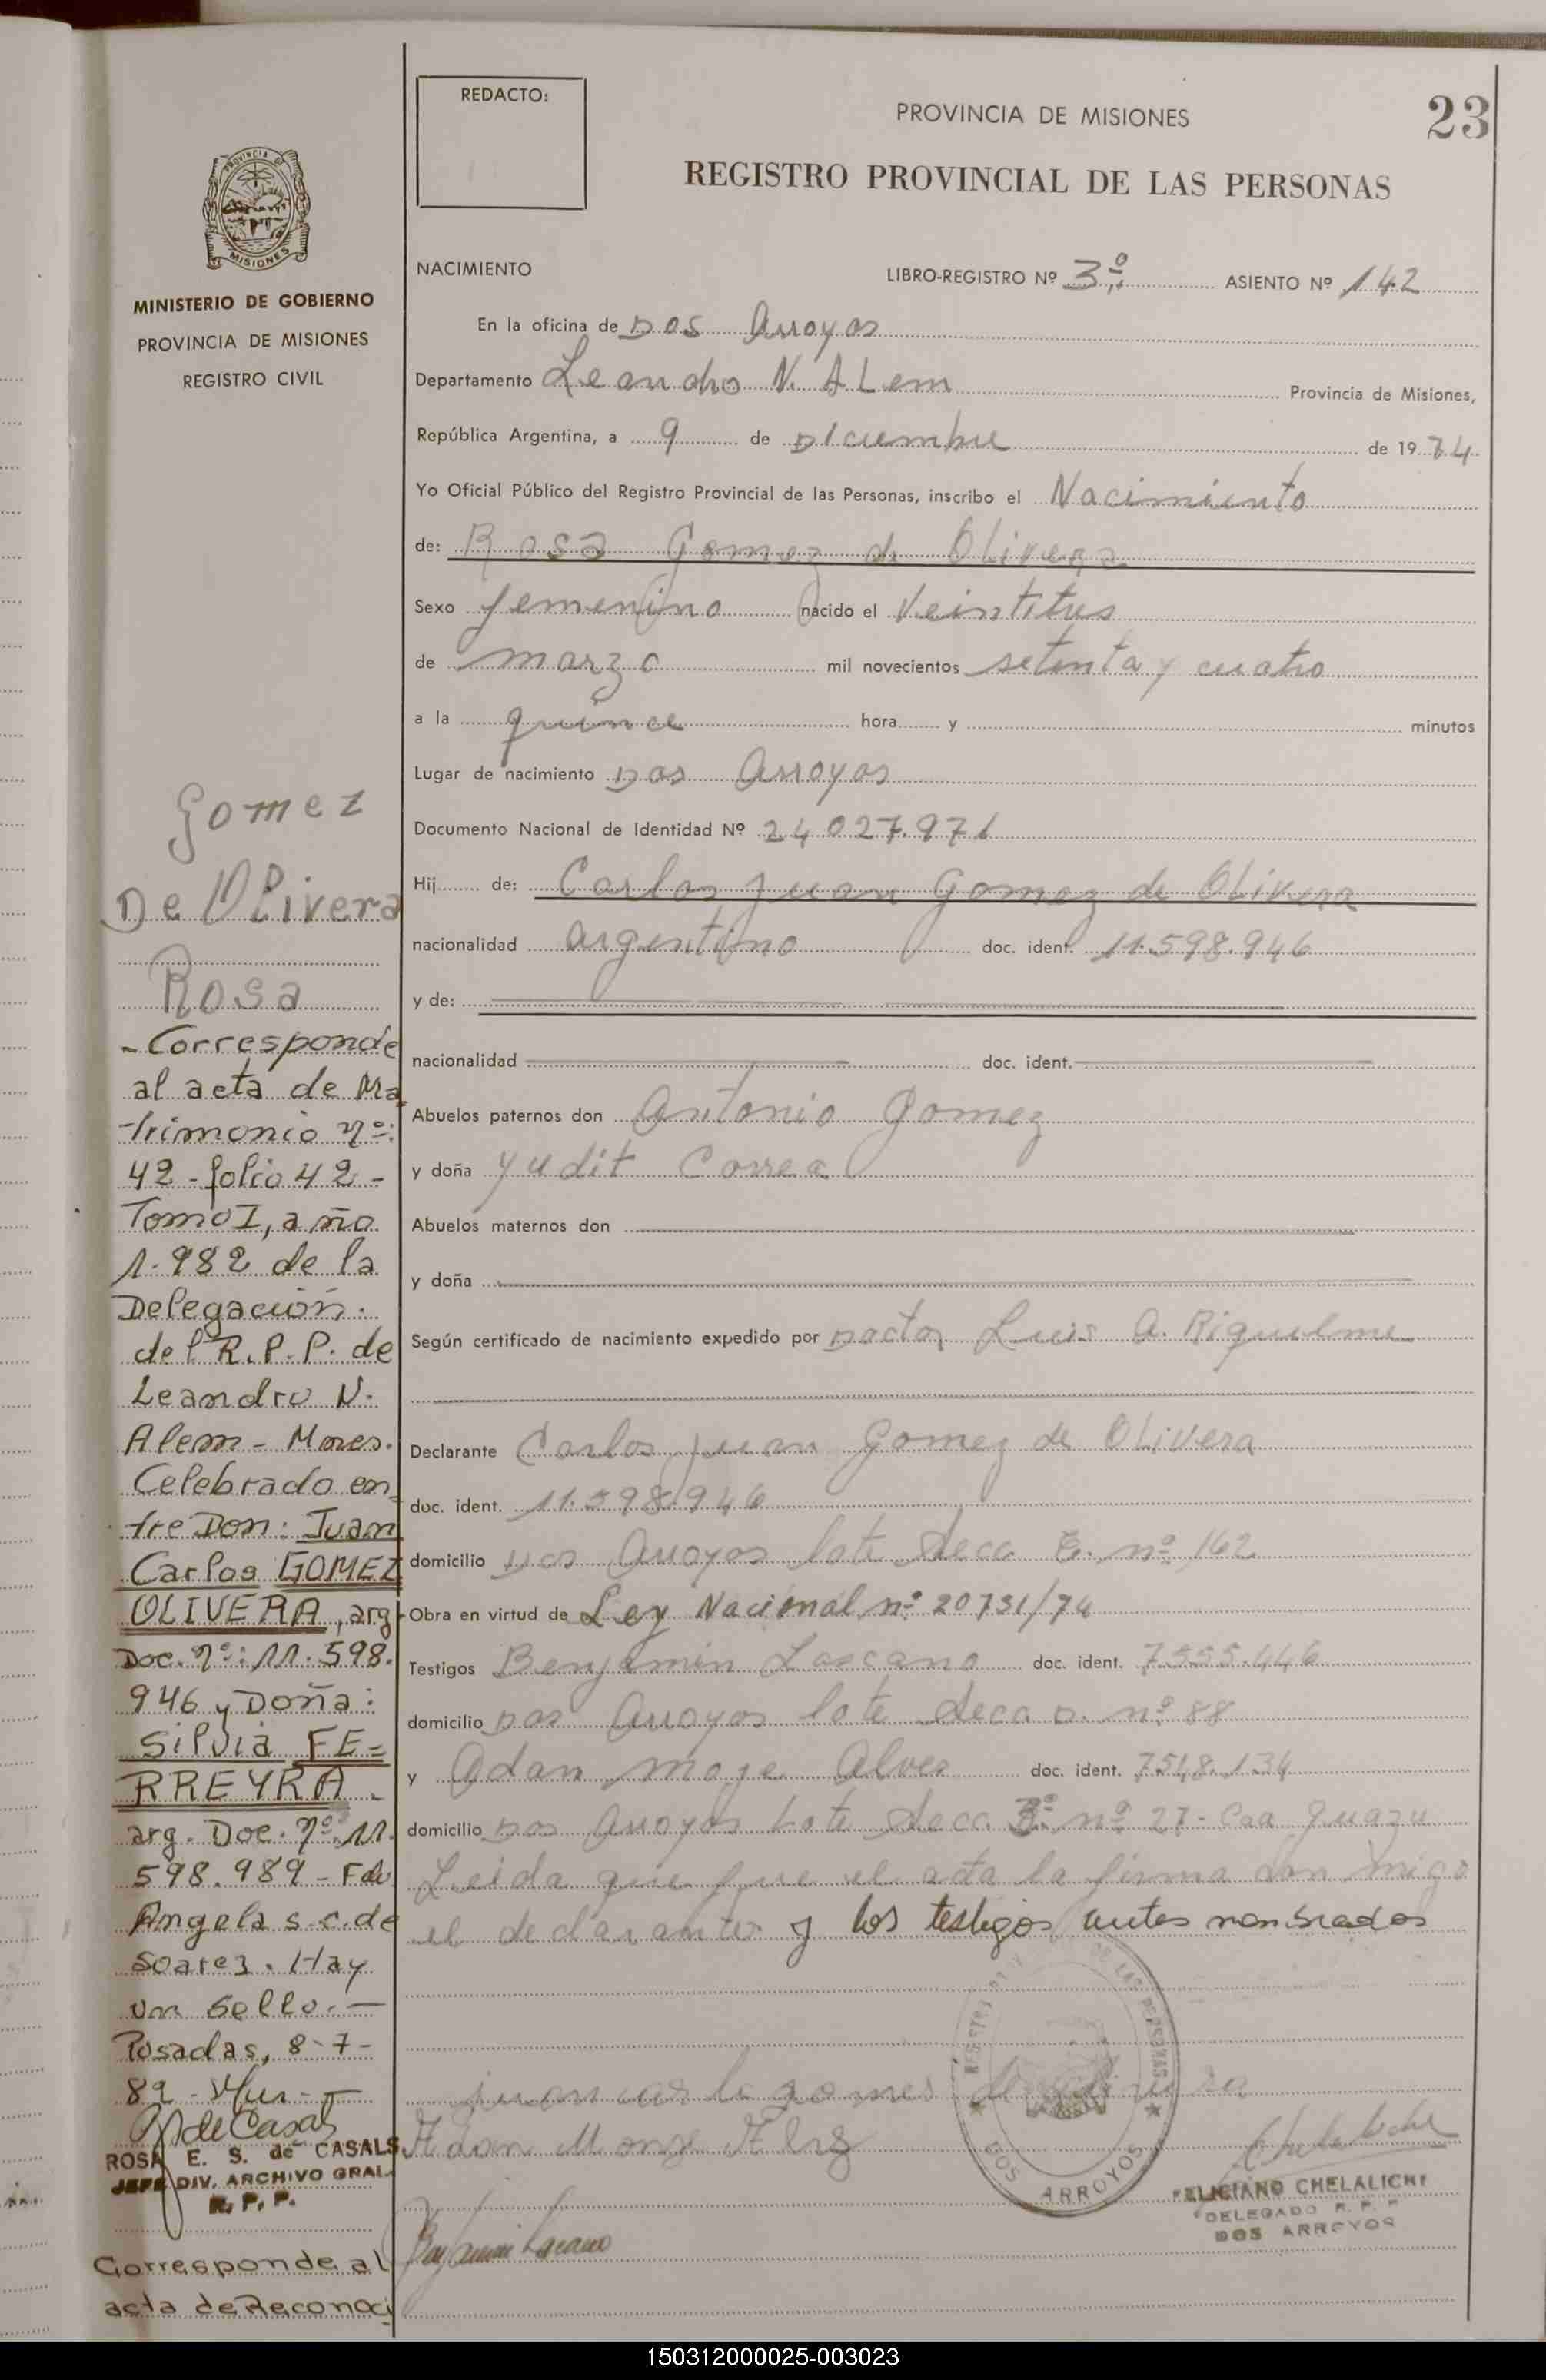 23
REDACTO:
PROVINCIA DE MISIONES
REGISTRO PROVINCIAL DE LAS PERSONAS
PROVINCIA DE
MISIONES
MINISTERIO DE GOBIERNO
PROVINCIA DE MISIONES
REGISTRO CIVIL
NACIMIENTO LIBRO-REGISTRO Nº 3º ASIENTO Nº 142
En la oficina de Dos Arroyos
Departamento Leandro N. ALem Provincia de Misiones,
República Argentina, a 9 de Diciembre de 1974
Yo Oficial Público del Registro Provincial de las Personas, inscribo el Nacimiento
de: Rosa Gomez de Olivera
Sexo femenino nacido el Veintitres
de marzo mil novecientos setenta y cuatro
a la quince hora y minutos
Lugar de nacimiento Dos Arroyos
Documento Nacional de Identidad Nº 24.027.971
Hij de: Carlos Juan Gomez de Olivera
nacionalidad argentino doc. ident. 11.598.946
y de:
nacionalidad doc. ident.
Abuelos paternos don Antonio Gomez
y doña Yudit Correa
Abuelos maternos don
y doña
Según certificado de nacimiento expedido por Doctor Luis A. Riquelme
Declarante Carlos Juan Gomez de OLivera
doc. ident. 11.598.946
domicilio Dos Arroyos lote Secc E. nº 162
Obra en virtud de Ley Nacional nº 20731/74
Testigos Benjamin Lascano doc. ident. 7555.446
domicilio Dos Arroyos lote Secc D. nº 88
y Adan moje Alves doc. ident. 7548.134
domicilio Dos Arroyos Lote Secc nº 27- Caa Guazu
Leida que fue el acta la firma con migo
el declarante y los testigos antes nombrados
juan carlo gomes de
Adan Monje
Benjamin Lascano
DE LAS PERSONAS
DOS ARROYOS
FELICIANO CHELALICHI
DELEGADO R. P. P.
DOS ARROYOS
Gomez
De OLivera
Rosa
- Corresponde
al acta de Ma
trimonio nº:
42 - folio 42 -
Tomo I, año
1.982 de la
Delegación.
del R.P.P. de
Leandro N.
Alem - Mnes.
Celebrado en
tre Don: Juan
Carlos GOMEZ
OLIVERA, arg
Doc. nº: 11.598.
946 y Doña:
Silvia FE=
RREYRA.
arg. Doc. nº 11.
598.989 - Fdo
Angela S.C. de
Soarez. Hay
un Sello.-
Posadas, 8-7-
82-
ROSA E. S. de CASALS
JEFE DIV. ARCHIVO GRAL.
R. P. P.
Corresponde al
acta de Reconoci
150312000025-003023